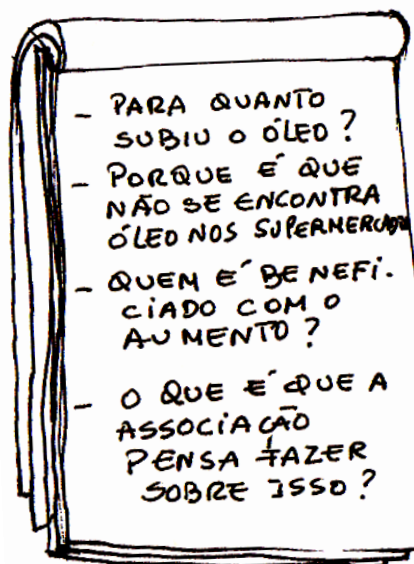 - PARA QUANTO
SUBIU O ÓLEO?
- PORQUE É QUE
NÃO SE ENCONTRA
ÓLEO NOS SUPERMERCADOS
- QUEM É BENEFI-
CIADO COM O
AUMENTO?
- O QUE É QUE A
ASSOCIAÇÃO
PENSA FAZER
SOBRE ISSO?